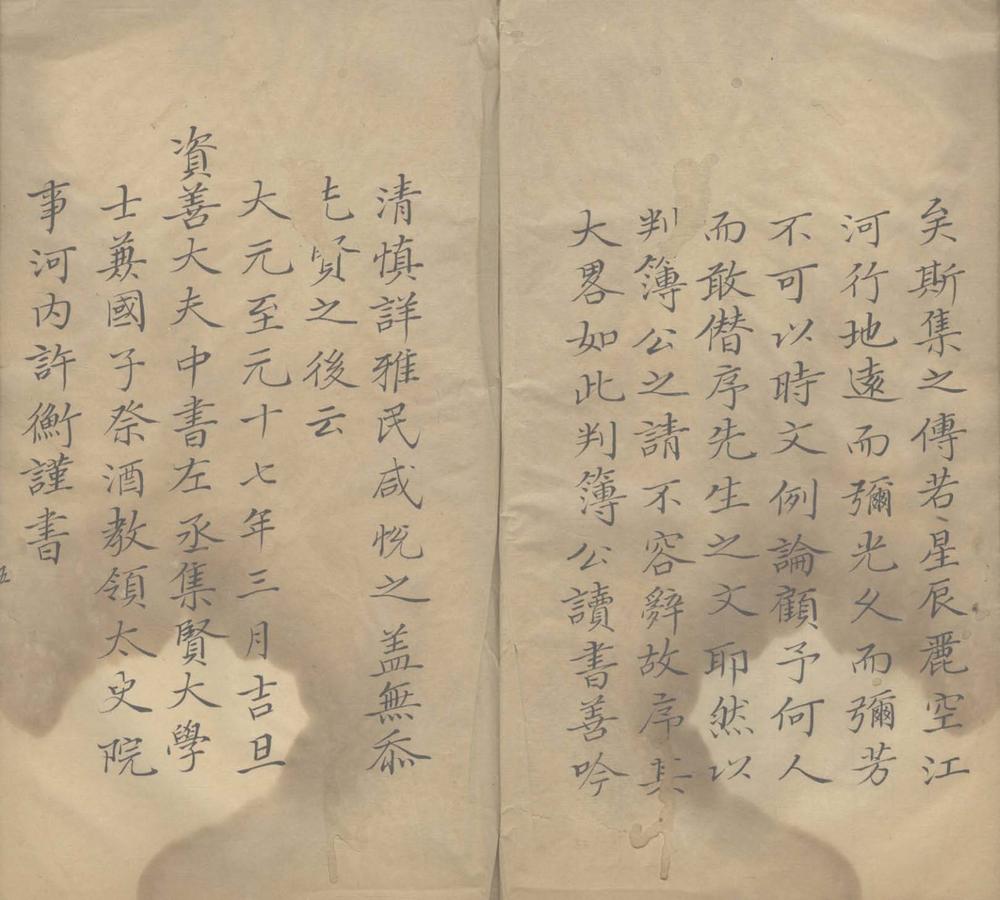 矣斯集之傳若星辰麗空江
河行地遠而彌光久而彌芳
不可以時文例論顧予何人
而敢僣序先生之文耶然以
判簿公之請不容辤故序其
大畧如此判簿公讀書善吟
清慎詳雅民咸恱之盖無忝
先贤之後云
大元至元十七年三月吉旦
資善大夫中書左丞集賢大學
士兼國子祭酒教領太史院
事河内許衡謹書
五